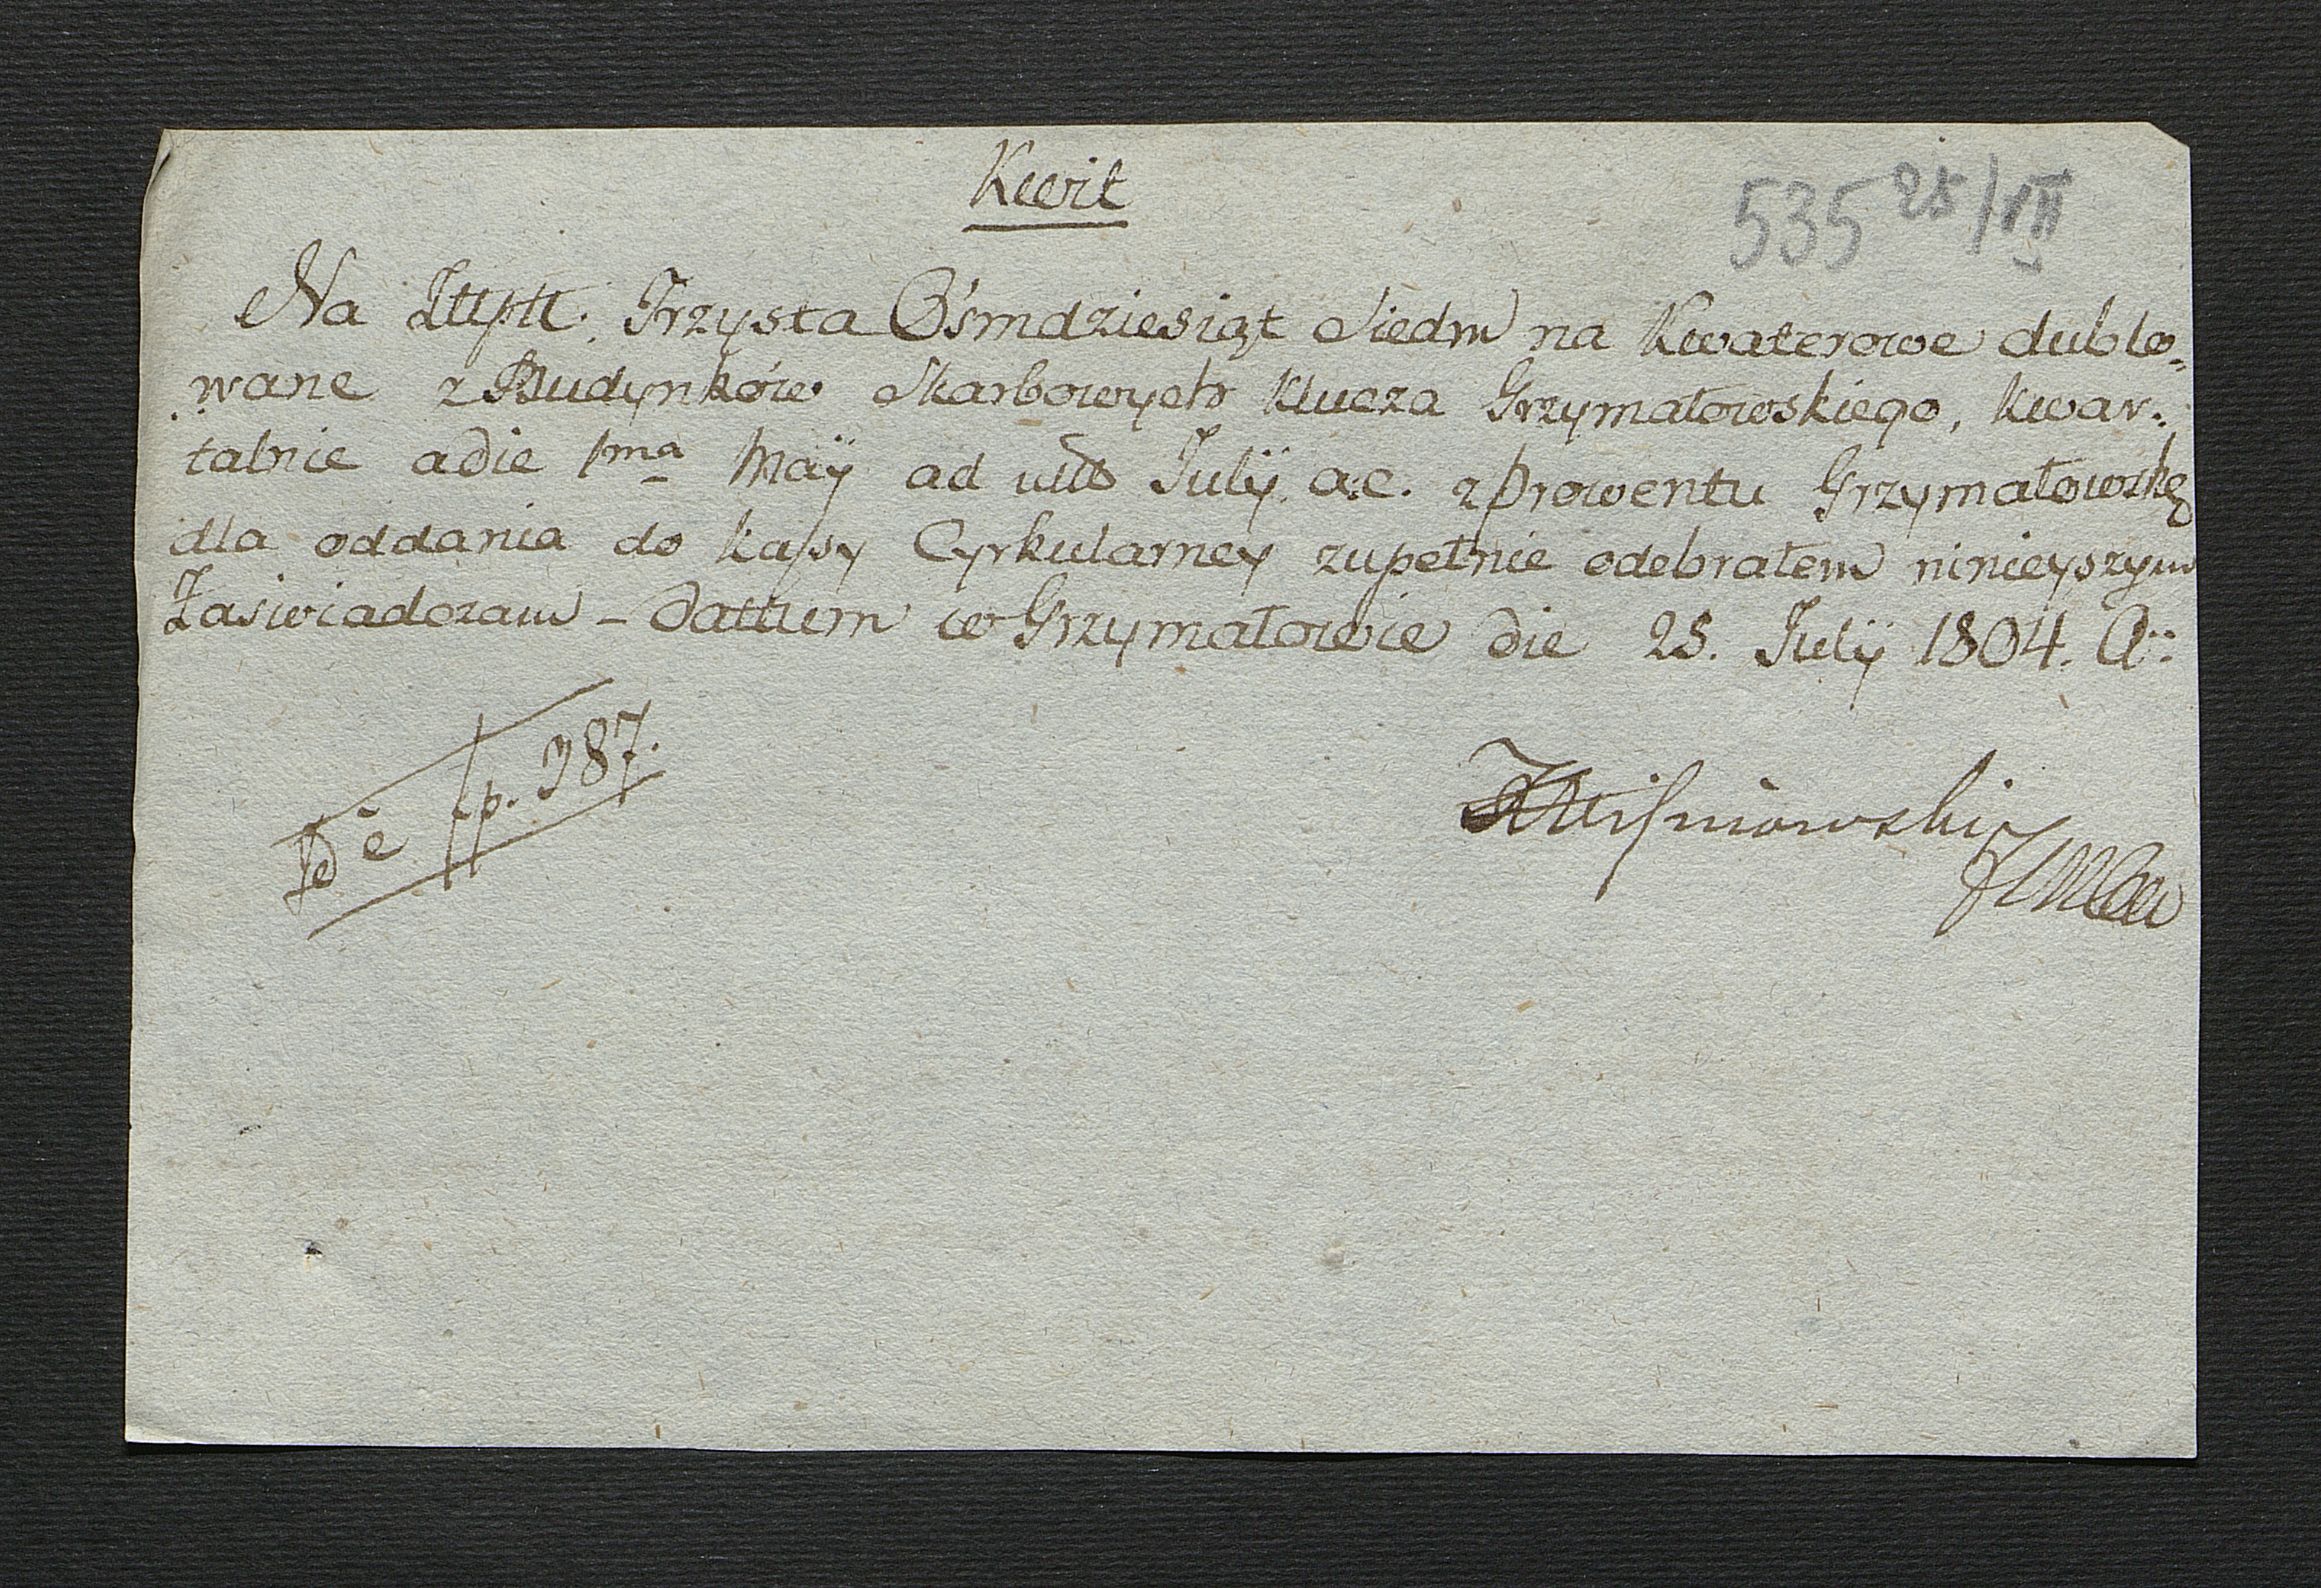 Kwit
535 25/VII
Na Złłptt. Trzysta Ośmdziesiąt Siedm na Kwaterowe dublo„
„wane z Budynków Skarbowych Klucza Grzymałowskiego, kwar„
talnie a die 1ma Maÿ ad ult Julÿ a:c. z Prowentu Grzymałowskg
dla oddania do kasy Cyrkularney zupełnie odebrałem ninieyszym
Zaświadczam – Dattum w Grzymałowie die 25. Julÿ 1804. A:
Id è fp. 387.
Wiśniowski